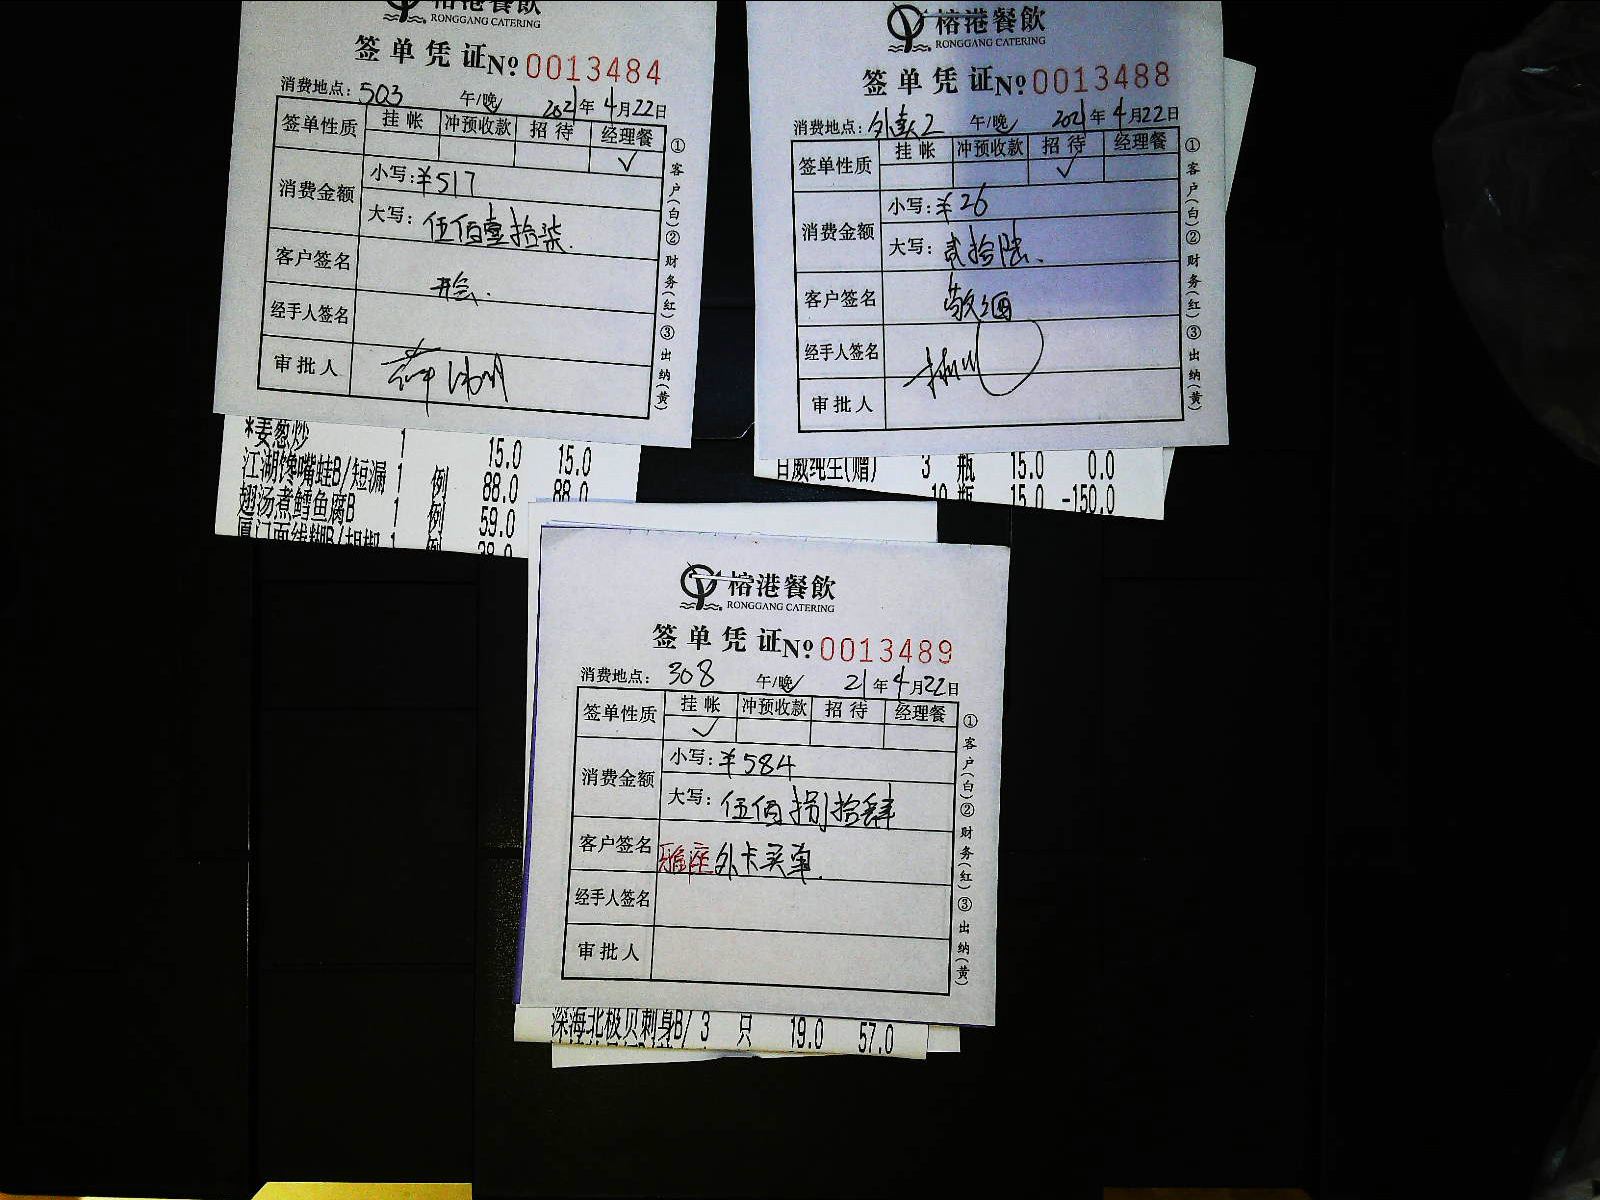 榕港餐飲
RONGGANG CATERING
签单凭证№0013484
消费地点：503 午/晚✓ 2021年4月22日
签单性质 挂帐 冲预收款 招待 经理餐
✓
消费金额 小写：¥517
大写：伍佰壹拾柒.
客户签名 开会.
经手人签名
审批人
①客户(白)②财务(红)③出纳(黄)
*姜葱炒 1 15.0 15.0
江湖馋嘴蛙B/短漏 1 例 88.0 88.0
翅汤煮鳕鱼腐B 1 例 59.0
厦门面线糊B/胡椒 1 例 38.0
榕港餐飲
RONGGANG CATERING
签单凭证№0013488
消费地点：外 2 午/晚✓ 2021年4月22日
签单性质 挂帐 冲预收款 招待 经理餐
✓
消费金额 小写：¥26
大写：贰拾陆.
客户签名 敬酒
经手人签名
审批人
①客户(白)②财务(红)③出纳(黄)
百威纯生(赠) 3 瓶 15.0 0.0
10 瓶 15.0 -150.0
榕港餐飲
RONGGANG CATERING
签单凭证№0013489
消费地点：308 午/晚✓ 21年4月22日
签单性质 挂帐 冲预收款 招待 经理餐
✓
消费金额 小写：¥584
大写：伍佰捌拾肆
客户签名 雅座外卡买单.
经手人签名
审批人
①客户(白)②财务(红)③出纳(黄)
深海北极贝刺身B/ 3 只 19.0 57.0